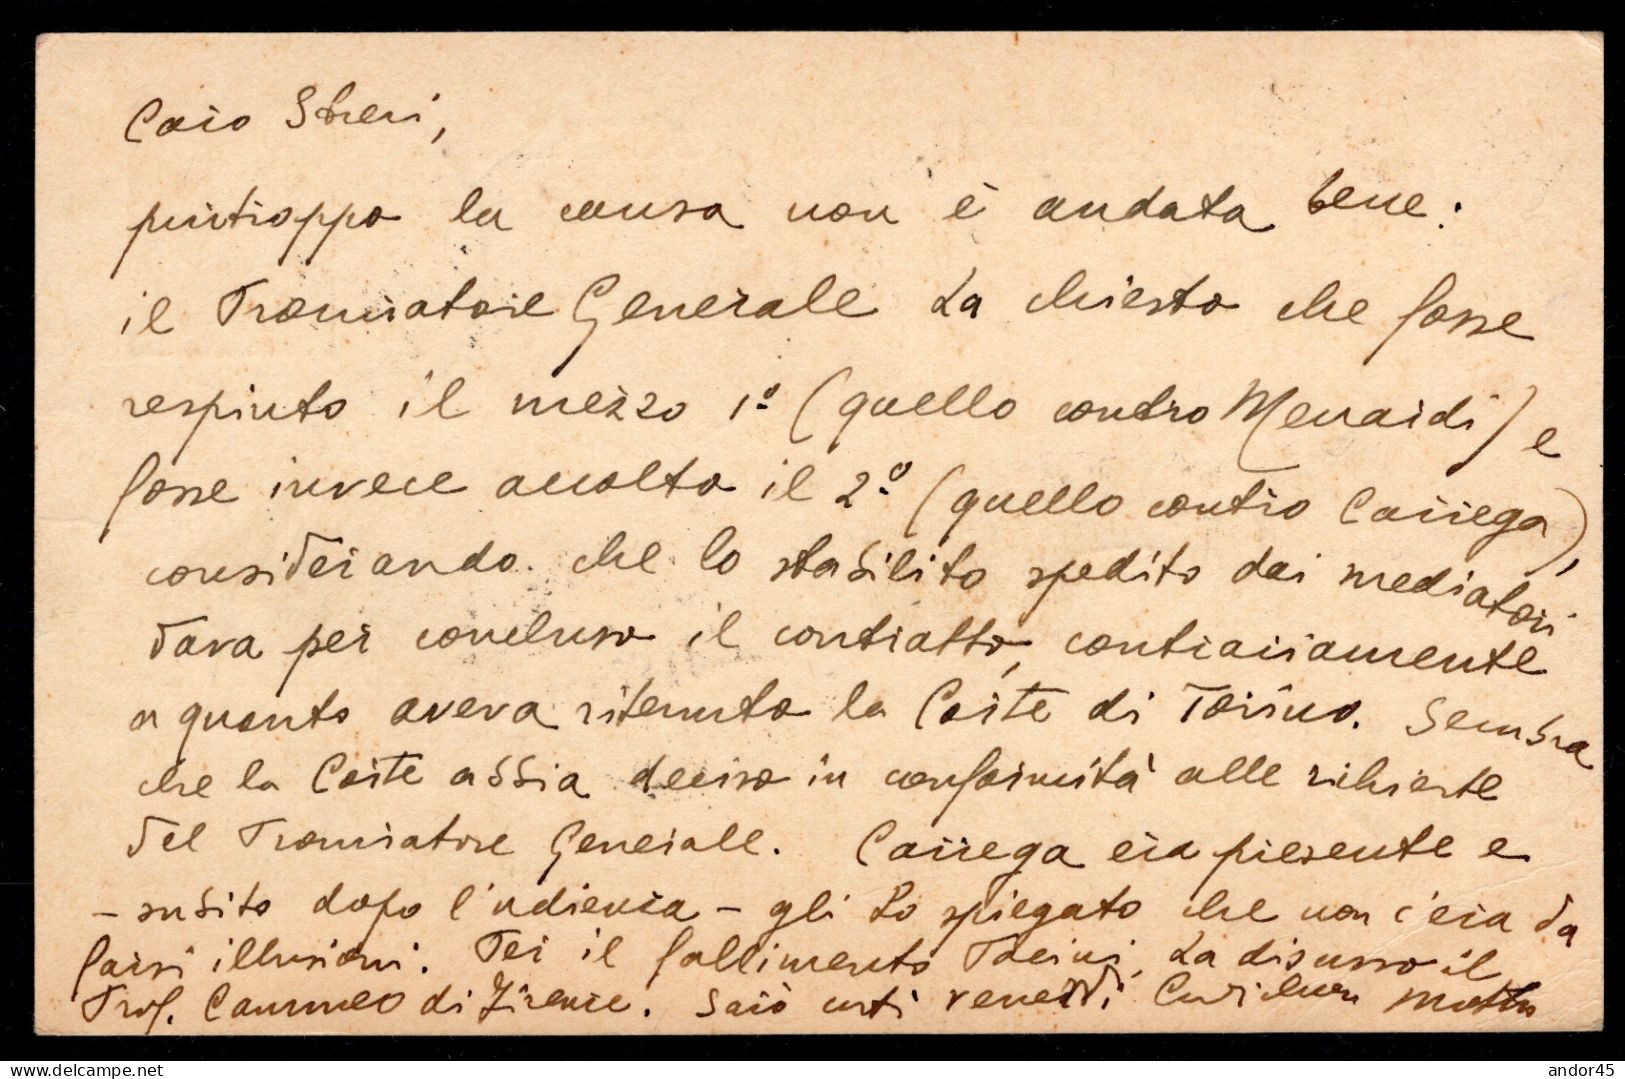 Caro Streri,
purtroppo la causa non è andata bene:
il Procuratore Generale ha chiesto che fosse
respinto il mezzo 1º (quello contro Menardi) e
fosse invece accolto il 2º (quello contro Carrega),
considerando che lo stabilito spedito dai mediatori
dava per concluso il contratto, contrariamente
a quanto aveva ritenuto la Corte di Torino. Sembra
che la Corte abbia deciso in conformità alle richieste
del Procuratore Generale. Carrega era presente e
- subito dopo l'udienza - gli ho spiegato che non c'era da
farsi illusioni. Per il fallimento Pacini, ha discusso il
Prof. Cammeo di Firenze. Sarò costì venerdì
delcampe.net
andor45